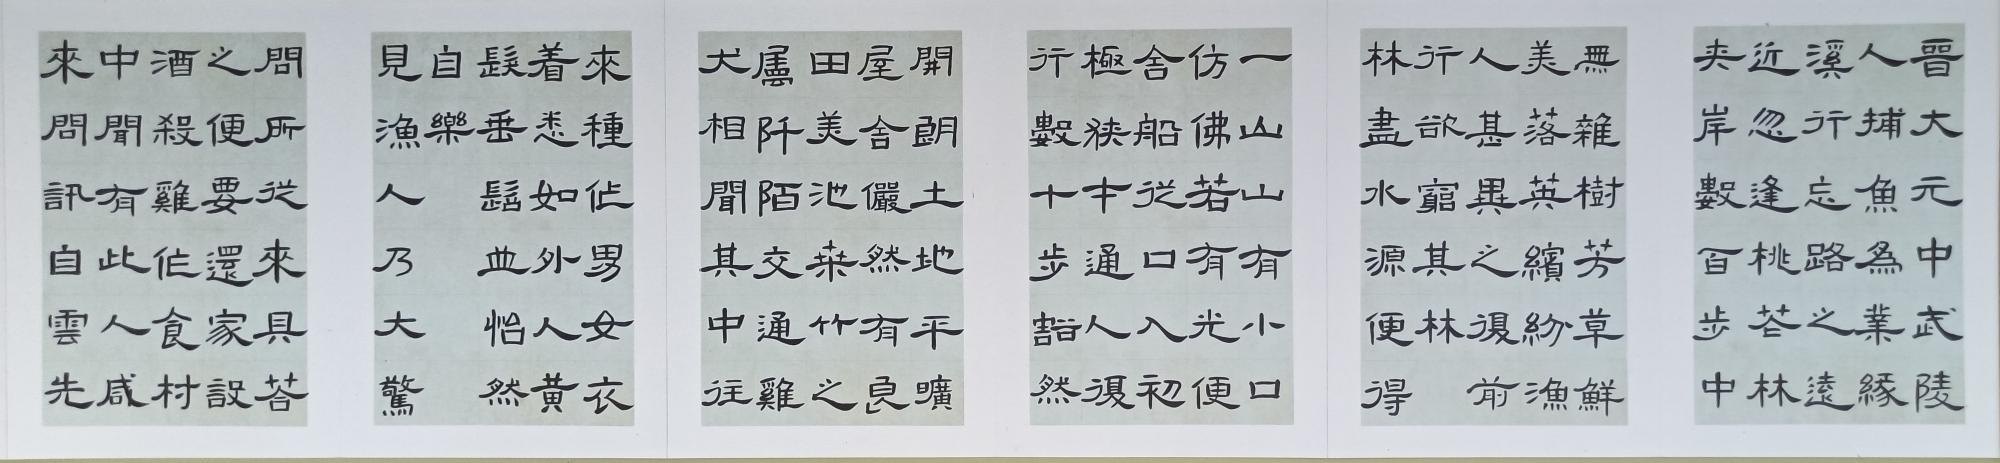 晉大元中武陵
人捕魚為業緣
溪行忘路之遠
近忽逢桃花林
夾岸數百步中
無雜樹芳草鮮
美落英繽紛漁
人甚異之復前
行欲窮其林
林盡水源便得
一山山有小口
仿佛若有光便
舍船從口入初
極狹才通人復
行數十步豁然
開朗土地平曠
屋舍儼然有良
田美池桑竹之
屬阡陌交通雞
犬相聞其中往
來種作男女衣
着悉如外人黃
髮垂髫並怡然
自樂
見漁人乃大驚
問所從來具答
之便要還家設
酒殺雞作食村
中聞有此人咸
來問訊自雲先